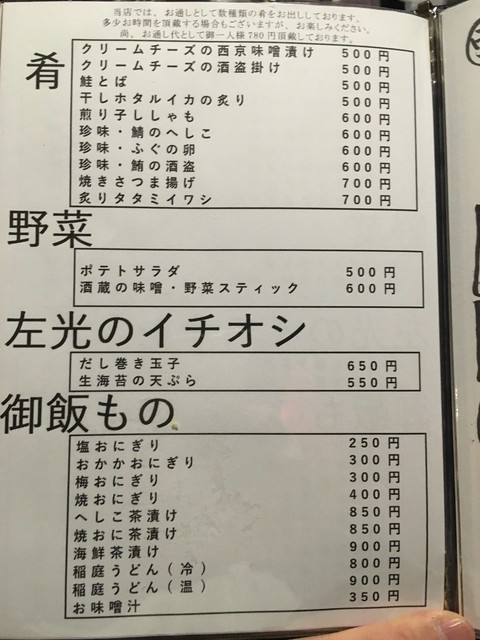 当店では、お通しとして数種類の肴をお出ししております。
多少お時間を頂戴する場合もございますが、お楽しみください。
尚、お通し代として御一人様780円頂戴しております。
肴
クリームチーズの西京味噌漬け 500円
クリームチーズの酒盗掛け 500円
鮭とば 500円
干しホタルイカの炙り 500円
煎り子ししゃも 600円
珍味・鯖のへしこ 600円
珍味・ふぐの卵 600円
珍味・鮪の酒盗 600円
焼きさつま揚げ 700円
炙りタタミイワシ 700円
野菜
ポテトサラダ 500円
酒蔵の味噌・野菜スティック 600円
左光のイチオシ
だし巻き玉子 650円
生海苔の天ぷら 550円
御飯もの
塩おにぎり 250円
おかかおにぎり 300円
梅おにぎり 300円
焼おにぎり 400円
へしこ茶漬け 850円
焼おに茶漬け 850円
海鮮茶漬け 900円
稲庭うどん(冷) 800円
稲庭うどん(温) 900円
お味噌汁 350円